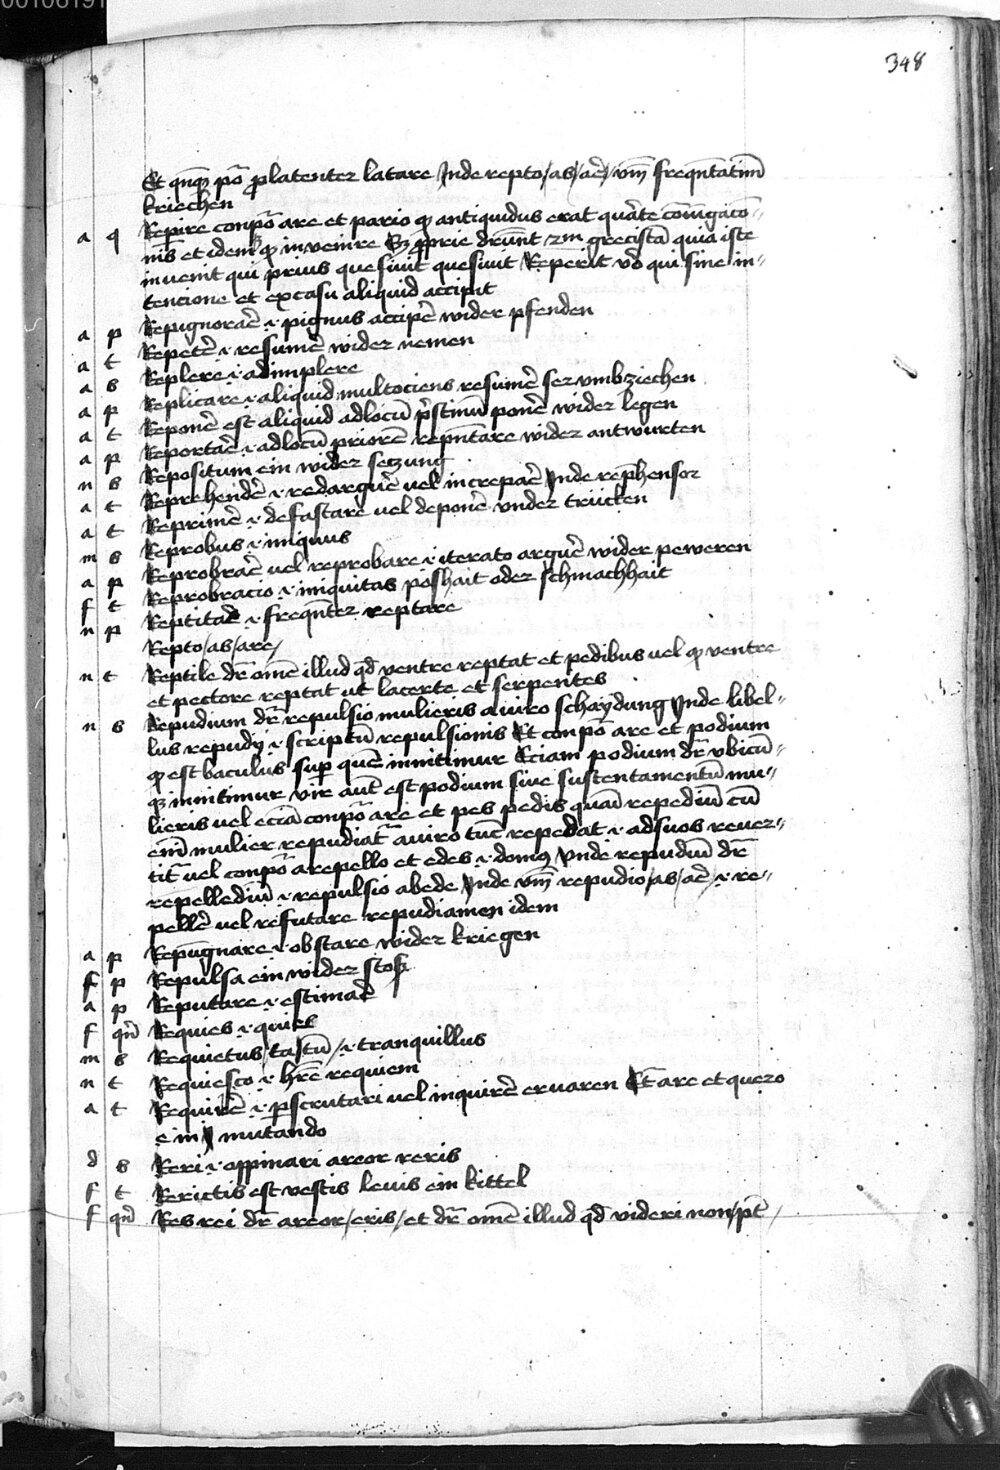 00106191
348
Et qnqz põ platenter latare Inde repto/as/arē/ vnū frequētatiuū
kriechen
a q Repire conpõ are et pario qz antiquidus erat quarte coniugacõ-
nis et idem qz invenire Sz pprie drūnt zm grecistā quia iste
invenit qui prius quesiuit quesiuit Reperit vo qui sine in-
tencione et ex casu aliquid accipit
a p Repignorarē .i. pignus accipē wider pfenden
a t Repetē .i. resumē wider nemen
a s Replere .i. adimplere
a p Replicare .i. aliquid multociens resumē ser vmbziechen
a t Reponē est aliquid ad locū pstinū ponē wider legen
a p Reportarē .i. ad locū priorē repntare wider antwurten
n s Repositum ein wider seczung
a t Reprehendē .i. redarguē uel increparē Inde rephensor
a t Reprimē .i. defastare uel deponē vnder trucken
m s Reprobus .i. iniquus
a p Reprobrarē uel reprobare .i. iterato arguē wider peweren
f t Reprobracio .i. iniquitas poshait oder schmachhait
n p Reptitarē .i. frequēter reptare
Repto/as/are/
n t Reptile dr omē illud qd ventre reptat et pedibus uel qz ventre
et pectore reptat ut lacerte et serpentes
n s Repudium dr repulsio mulieris a uiro schaydung Inde libel-
lus repudij .i. scriptū repulsionis Et conpõ are et podium
qz est baculus sup quē innitimur Eciam podium dr vbicū-
qz innitimur vir aut est podium siue sustentamentū mu-
lieris uel eciā conpõ are et pes pedis quasi repediū cū
enī mulier repudiat a uiro tūc repedat .i. ad suos reuer-
tit uel conpõ a repello et edes .i. domus Vnde repudiū dr
repelledium .i. repulsio ab ede Inde vnū repudio/as/arē/ .i. re-
pellē uel refutare repudiamen idem
a p Repugnare .i. obstare wider kriegen
f p Repulsa ein wider stosz
a p Reputare .i. estimarē
f qn Requies .i. quies
m s Requietus/ta/tū/ .i. tranquillus
n t Requiesco .i. hre requiem
a t Requirē .i. pscrutari uel inquirē ervaren Et are et quero
e in i mutando
d s Reri .i. oppinari a reor reris
f t Rerictis est vestis leuis ein kittel
f qn Res rei dr a reor/eris/ et dr omē illud qd videri non/pt/